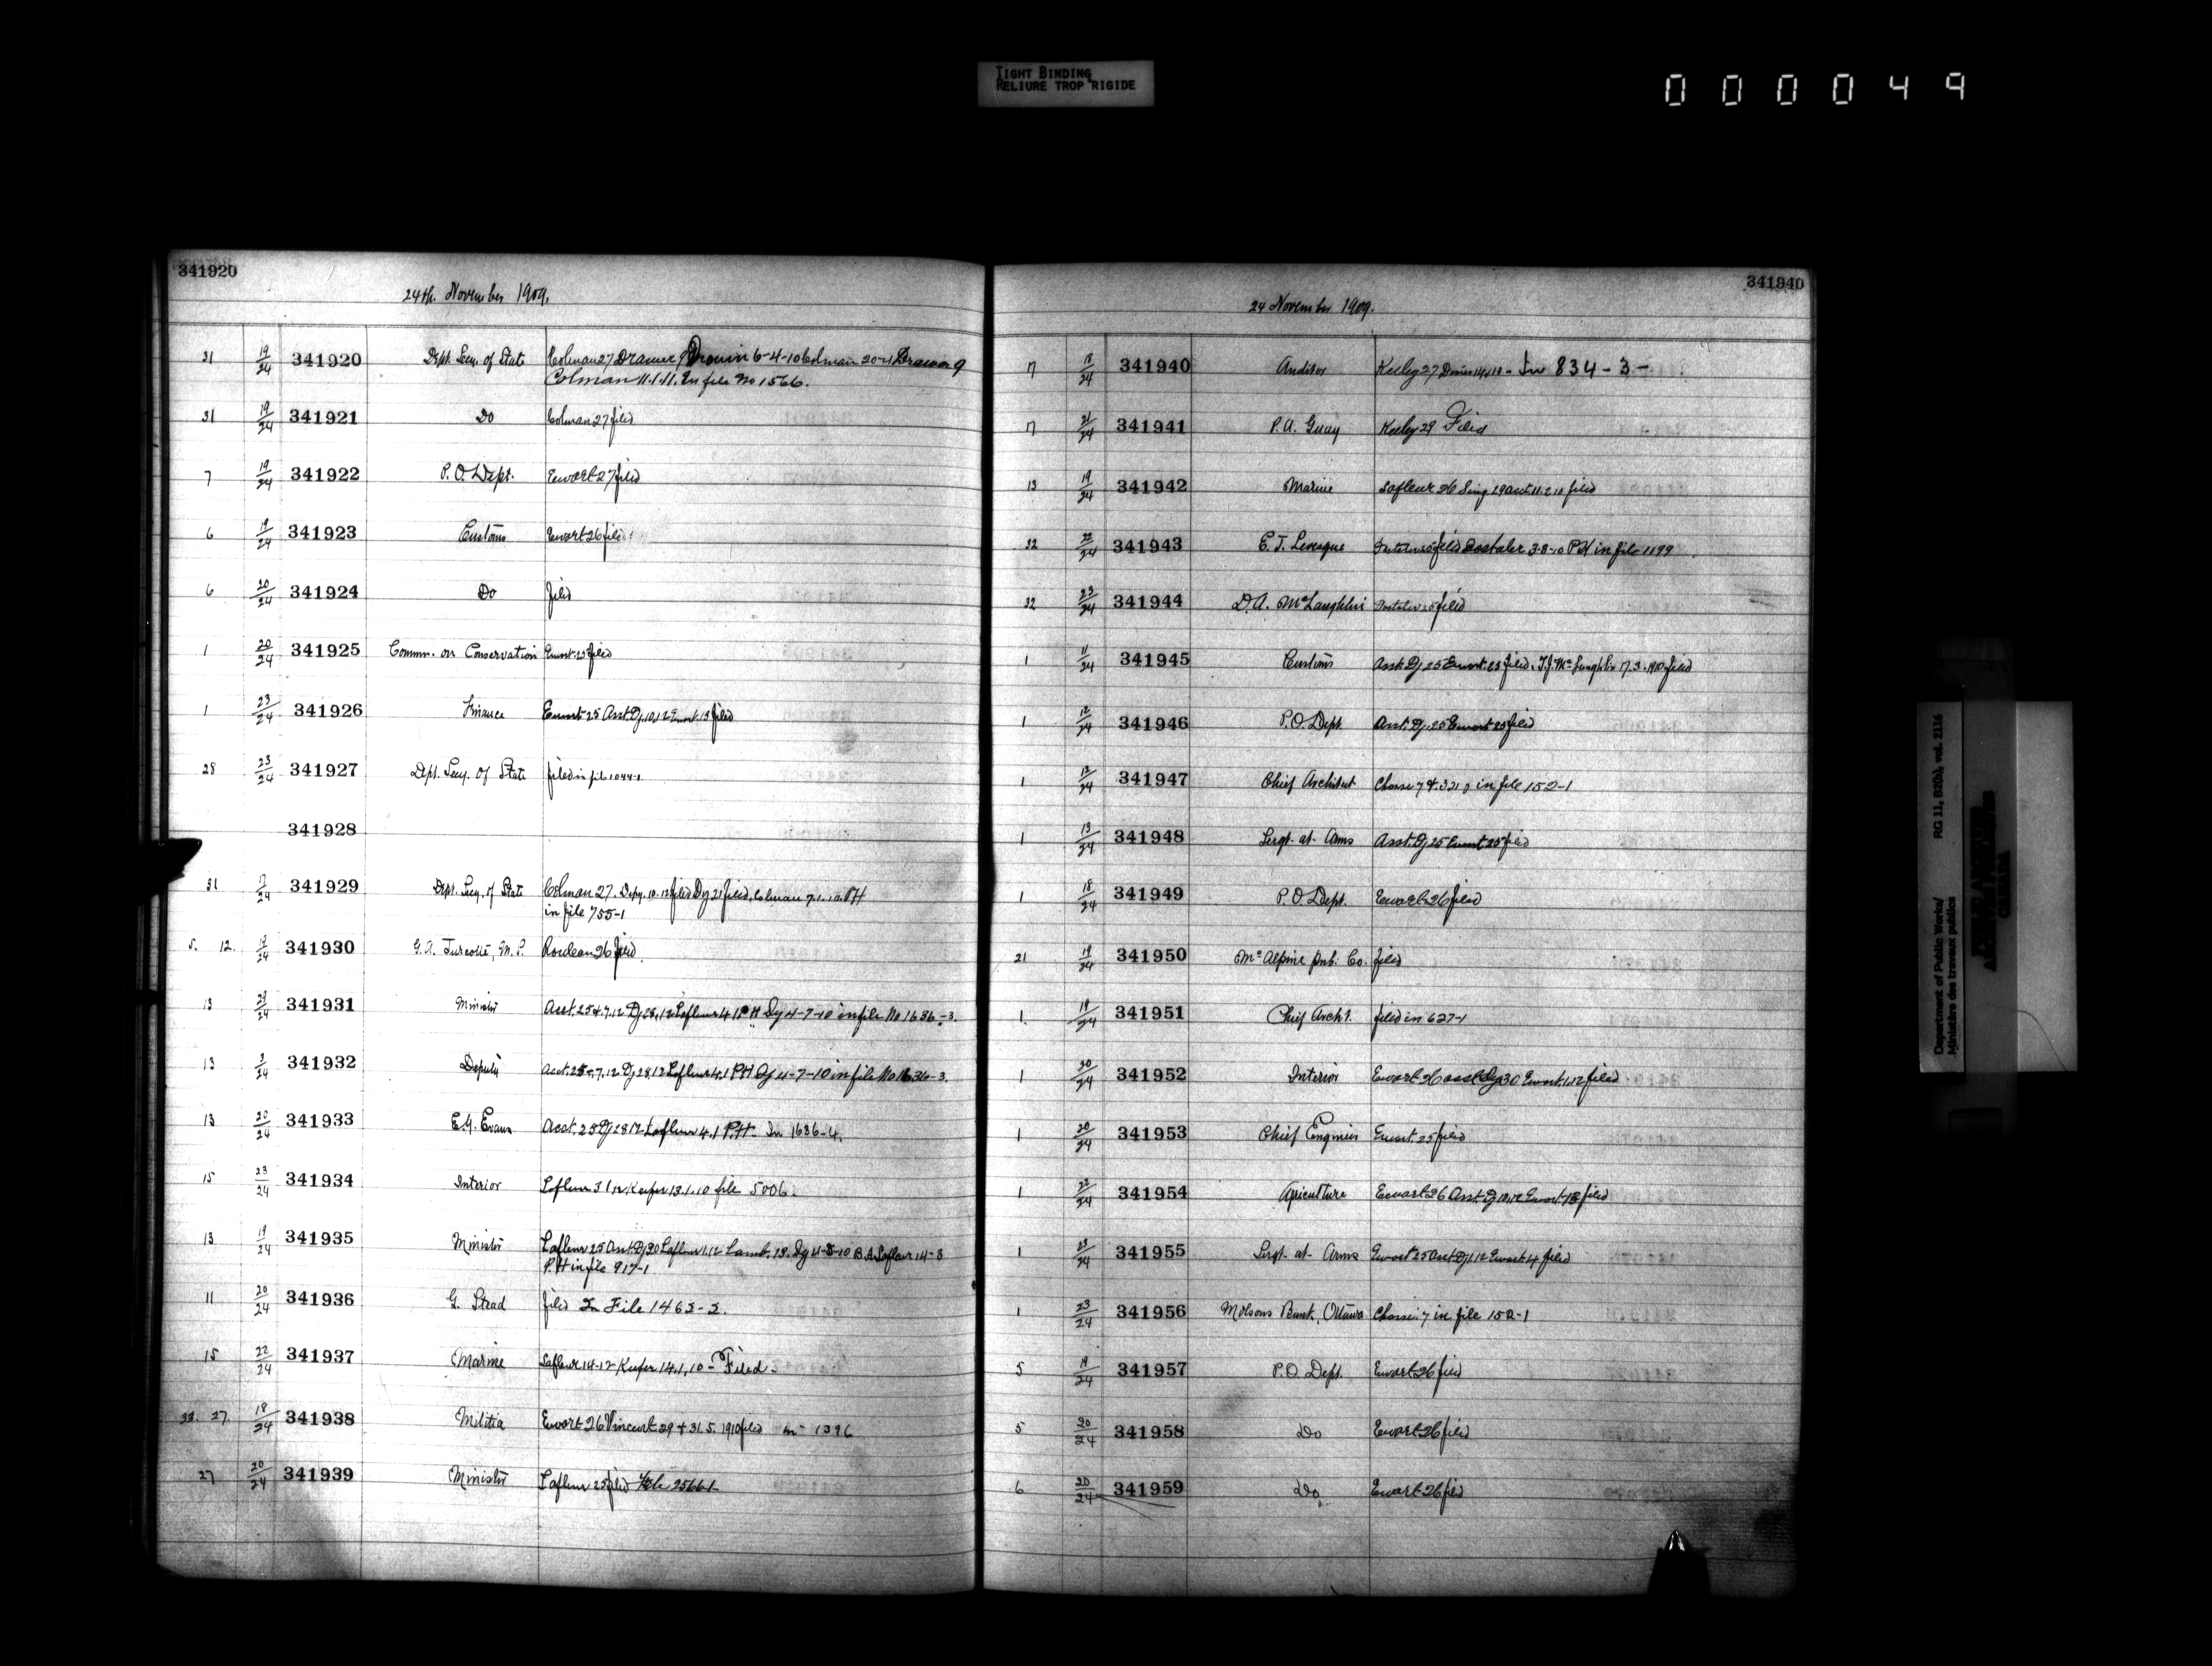 TIGHT BINDING
RELIURE TROP RIGIDE
000049
341920
24th. November 1909.
31 19/24 341920 Dept. Secy. of State Colman 27 Drawer 9 Drouin 6-4-10 Colman 20-4 Drawer 9
Colman 11.1.11. In file No 1566.
31 19/24 341921 Do Colman 27 filed
7 19/24 341922 P.O. Dept. Ewart 27 filed
6 19/24 341923 Customs Ewart 26 filed
6 20/24 341924 Do filed
1 20/24 341925 Comm. on Conservation Ewart 25 filed
1 23/24 341926 Finance Ewart 25 Asst. Dy. 10.12 Ewart 13 filed
28 23/24 341927 Dept. Secy. of State filed in file 1044-1
341928
31 17/24 341929 Dept. Secy. of State Colman 27. Depy. 10.12 filed Dy 21 filed, Colman 7.1.10. PH
in file 755-1
5. 12. 19/24 341930 G.A. Turcotte, M.P. Rouleau 26 filed
13 341931 Minister Asst. 25 & 7.12 Dy 28.12 Lafleur 4.1 PH Dy 4-7-10 in file No 1636-3.
13 3/24 341932 Deputy Asst. 25 & 7.12 Dy 28.12 Lafleur 4.1 PH Dy 4-7-10 in file No 1636-3.
13 20/24 341933 Evans Asst. 25 Dy 28 12 Lafleur 4.1 P.H. In 1636-4.
15 23/24 341934 Interior Lafleur 3 12 Keefer 13.1.10 file 5006.
13 19/24 341935 Minister Lafleur 25 Asst. Dy 30 Lafleur 1.12 Lamb. 13. Dy 4-8-10 Lafleur 14-8
P.H in file 917-1
11 20/24 341936 G. Stead filed In File 1463-2.
15 22/24 341937 Marine Lafleur 14-12 Keefer 14.1.10 - Filed -
33. 27. 18/24 341938 Militia Ewart 26 Vincent 29 & 31.5.1910 filed in 1396
27 20/24 341939 Minister Lafleur 25 filed File 2566-1
341940
24 November 1909.
7 18/24 341940 Auditor Keeley 27 - In 834-3-
7 21/24 341941 P.A. Guay Keeley 29 Filed
13 19/24 341942 Marine Lafleur 26 filed
32 22/24 341943 E.J. Levesque filed 3-8-10 PH in file 1199
32 23/24 341944 D.A. McLaughlin filed
1 11/24 341945 Customs Asst. Dy 25 Ewart 25 filed. T.J. McLaughlin 17.3.1910 filed
1 12/24 341946 P.O. Dept. Asst. Dy. 25 Ewart 25 filed
1 12/24 341947 Chief Architect in file 152-1
1 13/24 341948 Sergt. at. Arms Asst. Dy 25 Ewart 25 filed
1 18/24 341949 P.O. Dept. Ewart 26 filed
21 19/24 341950 McAlpine Pub. Co. filed
1. 19/24 341951 Chief Archt. filed in 627-1
1 20/24 341952 Interior Ewart 26 asst Dy 30 Ewart 1.12 filed
1 20/24 341953 Chief Engineer Ewart 25 filed
1 22/24 341954 Agriculture Ewart 26 Asst. Dy 10.12 Ewart 13 filed
1 23/24 341955 Sergt. at. Arms Ewart 25 Asst Dy 1.12 Ewart 4 filed
1 23/24 341956 Molsons Bank, Ottawa 7 in file 152-1
5 19/24 341957 P.O. Dept. Ewart 26 filed
5 20/24 341958 Do Ewart 26 filed
6 20/24 341959 Do Ewart 26 filed
Department of Public Works/ RG 11, B2(b), vol. 2116
Ministère des travaux publics